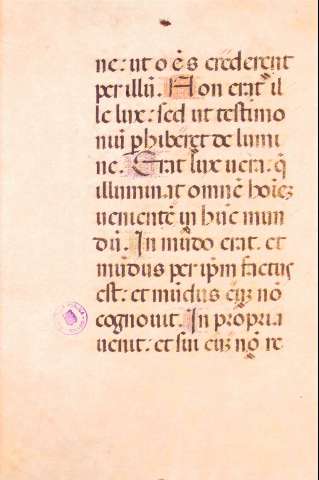 ne: ut oẽs crederent
per illũ. Non erat il
le lux: sed ut testimo
niũ phiberet de lumi
ne. Erat lux uera: q̃
illuminat omnẽ hoiez
uenientẽ in hũc mun
dũ. In mũdo erat. et
mũdus per ip̃m factus
est: et mũdus eũz nõ
cognouit. In propria
uenit: et sui eũz nõ re